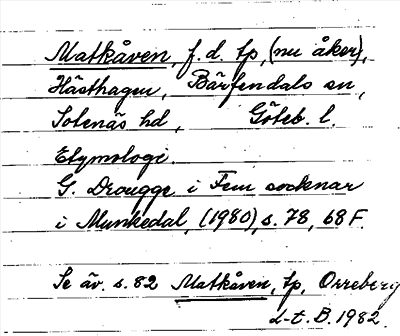 Matkåven, f.d. tp, (nu åker),
Hästhagen, Bärfendals sn,
Sotenäs hd, Göteb. l.
Etymologi.
G. Drougge i Fem socknar
i Munkedal, (1980), s. 78, 68 F.
Se äv. s. 82 Matkåven, tp, Orreberg
d-t. B. 1982.